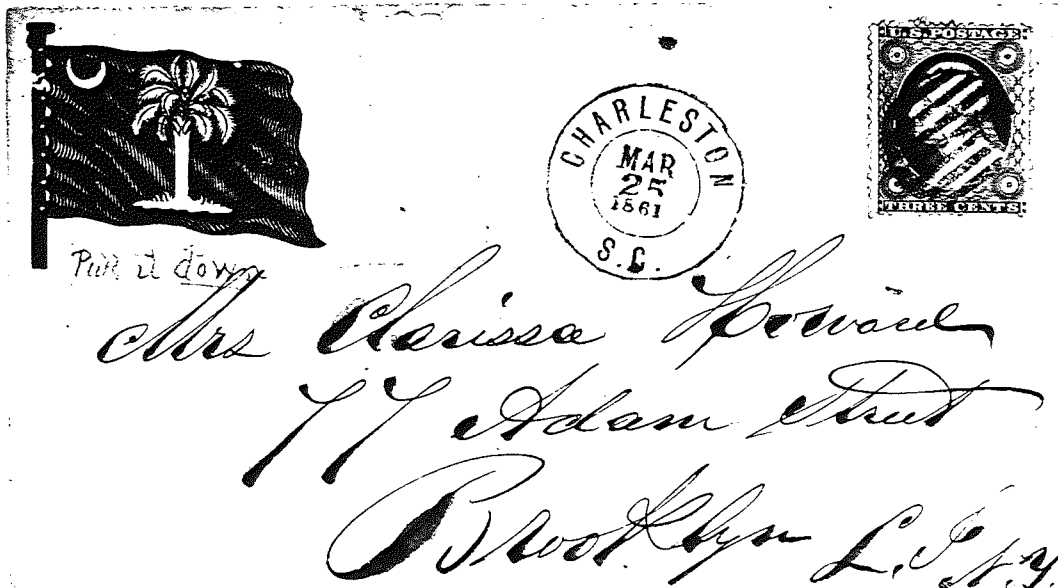 U.S. POSTAGE
THREE CENTS
CHARLESTON
MAR
25
1861
S.C.
Pull it down
Mrs Clarissa Howard
77 Adam Street
Brooklyn L.I. N.Y.